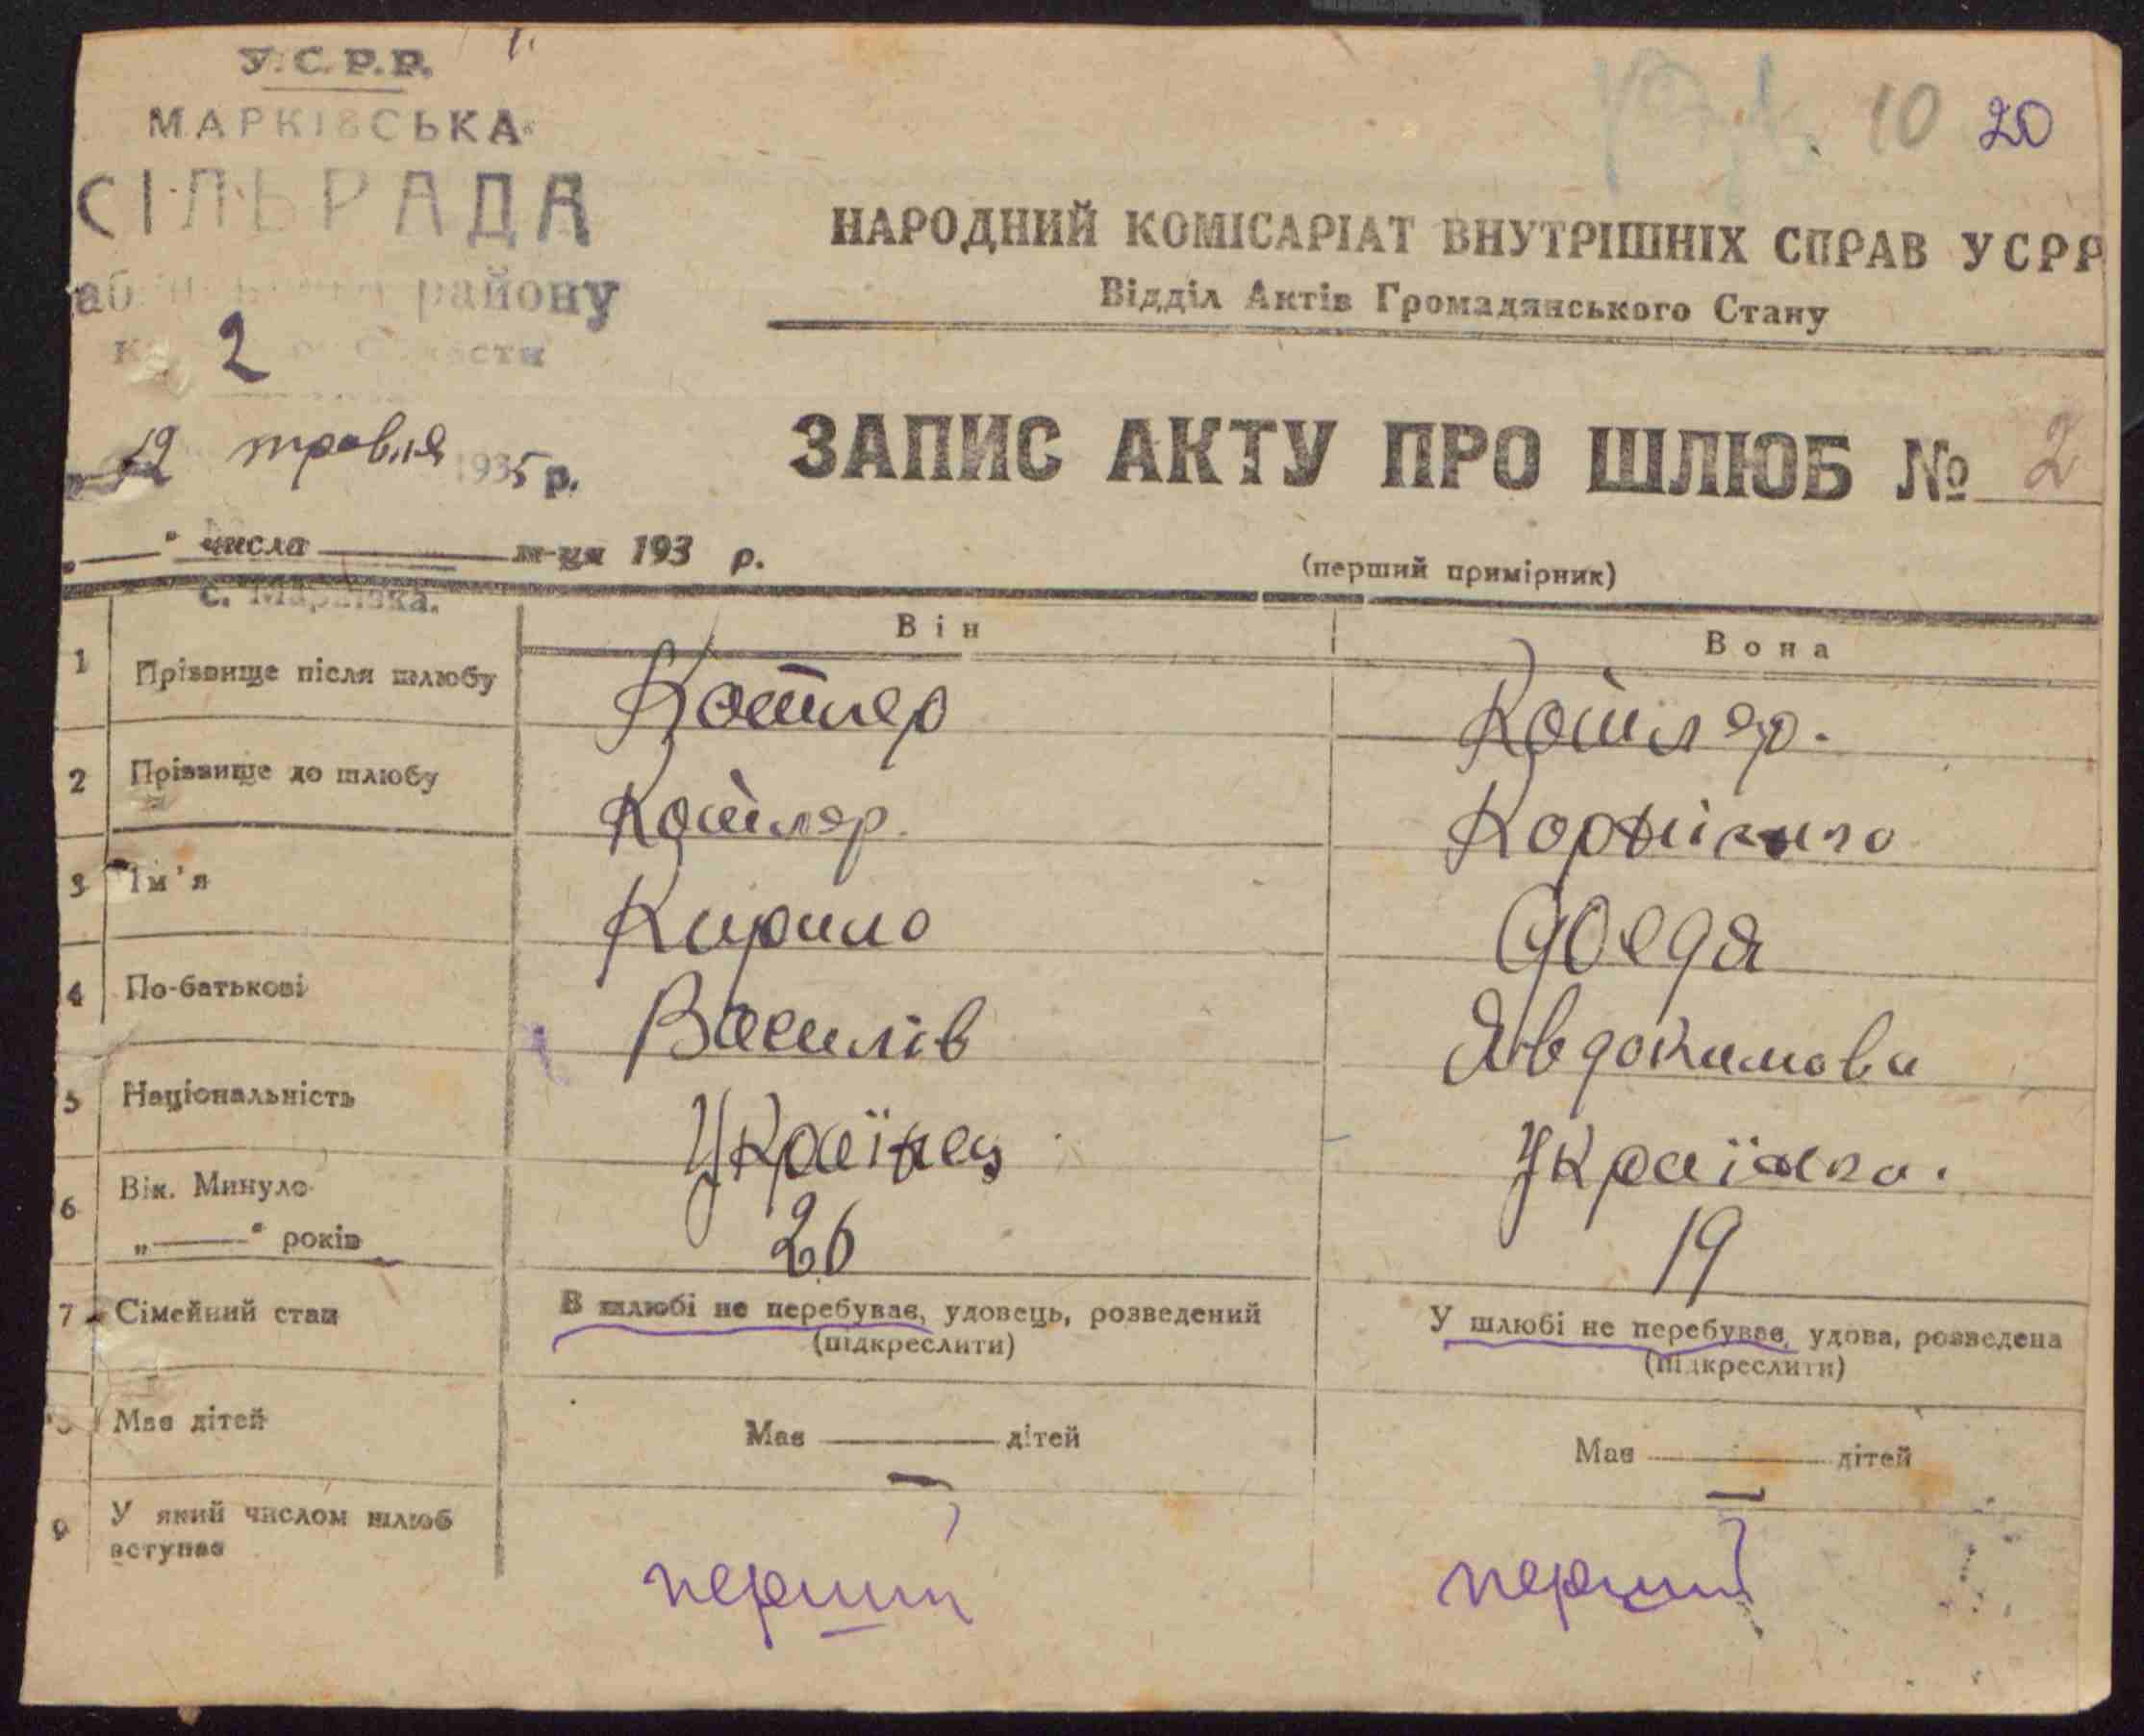 У.С.Р.Р.
МАРКІВСЬКА
СІЛЬРАДА
району
2
10 20
НАРОДНИЙ КОМІСАРІАТ ВНУТРІШНІХ СПРАВ УСРР
Відділ Актів Громадянського Стану
травня 1935 р.
ЗАПИС АКТУ ПРО ШЛЮБ № 2
„—“ числа — м-ця 193 р.
(перший примірник)
с. Марківка.
Він Вона
1 Прізвище після шлюбу Котляр Котляр.
2 Прізвище до шлюбу Котляр.
3 Ім'я Кирило
4 По-батькові Василів Явдокимова
5 Національність Українець Українка.
6 Вік. Минуло
„—“ років 26 19
7 Сімейний стан В шлюбі не перебуває, удовець, розведений У шлюбі не перебуває, удова, розведена
(підкреслити) (підкреслити)
Має дітей Має — дітей Має — дітей
9 У який числом шлюб
вступає
перший перший